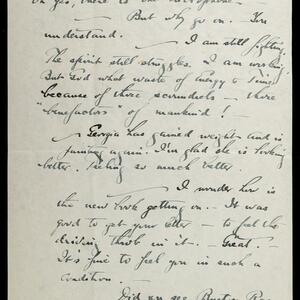 Oh yes, there is the
But why go on. You
understand.
I am still fighting.
The spirit still struggles. I am working.
But God what waste of energy &
because of those scoundrels — those
"benefactors" of mankind!
Georgia has gained weight and is
painting again. I'm glad she is looking
better. Feeling so much better
I wonder how is
the new book getting on. — It was
good to get your letter — to feel the
driving throb in it. — Great. —
It's fine to feel you in such a
condition. —
Did you see